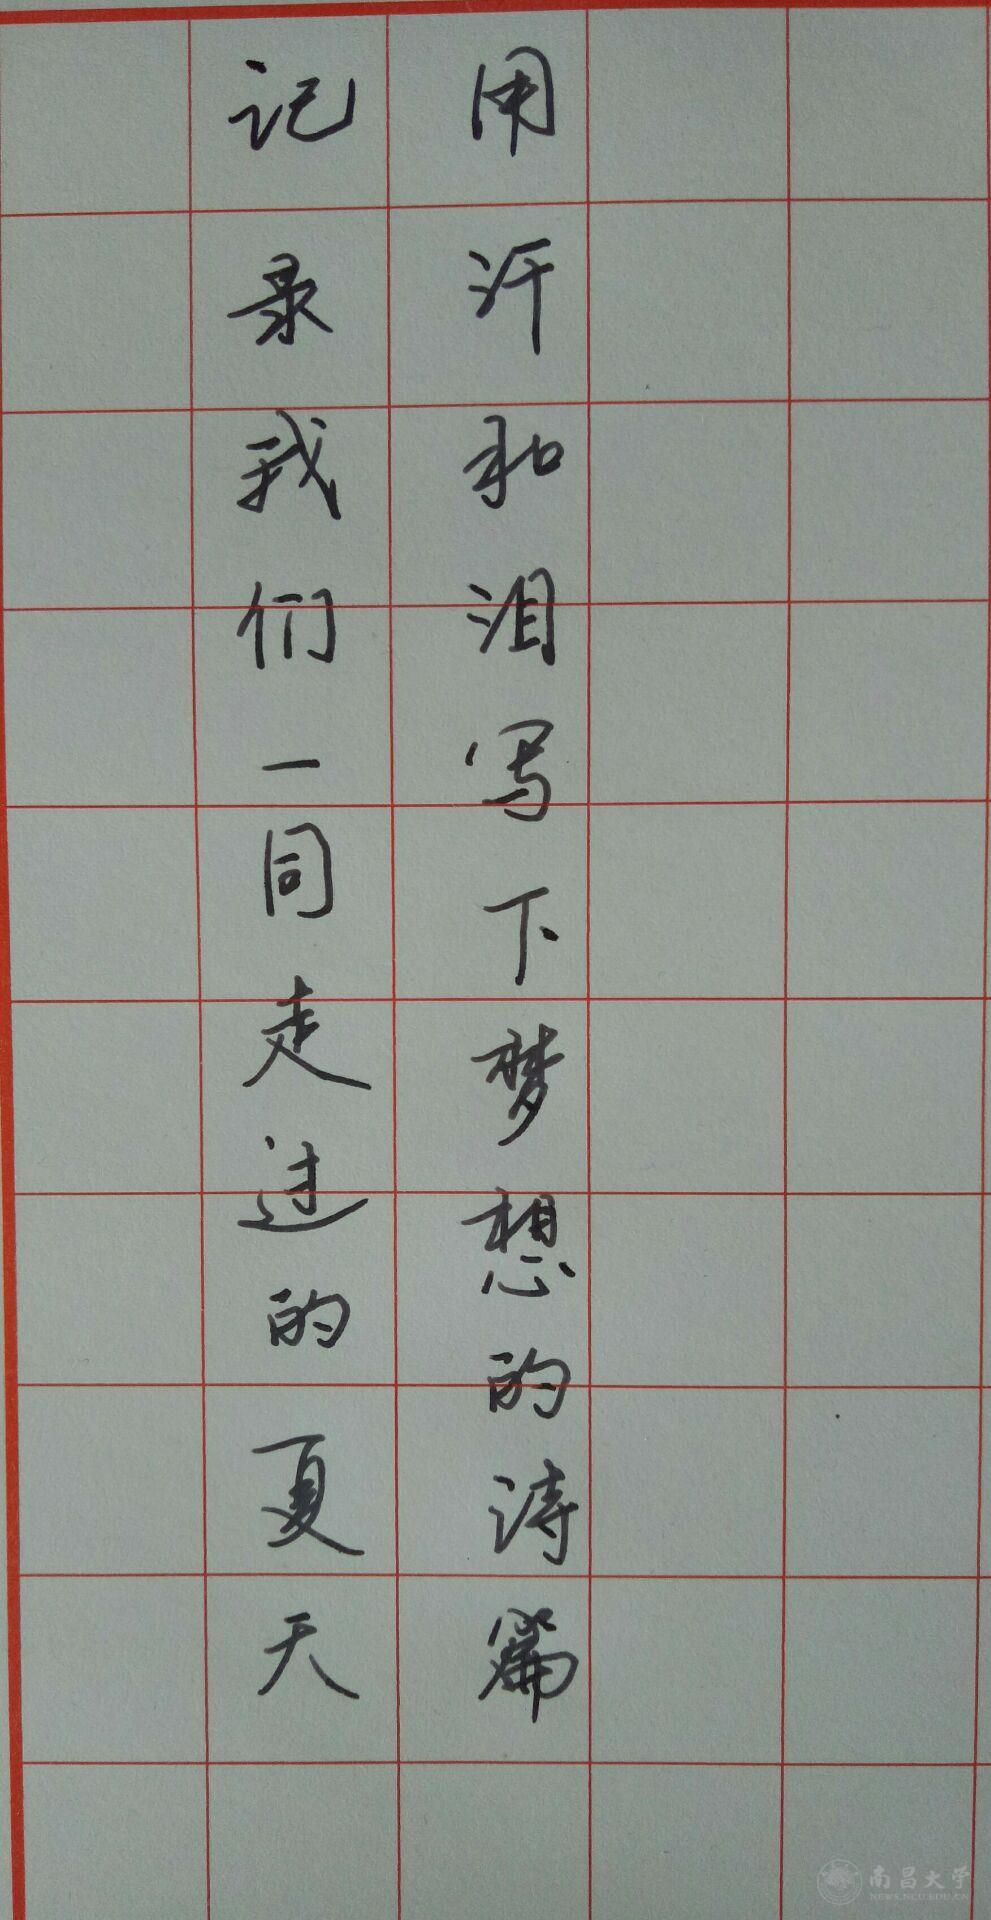 用汗和泪写下梦想的诗篇
记录我们一同走过的夏天
南昌大学
NEWS.NCU.EDU.CN